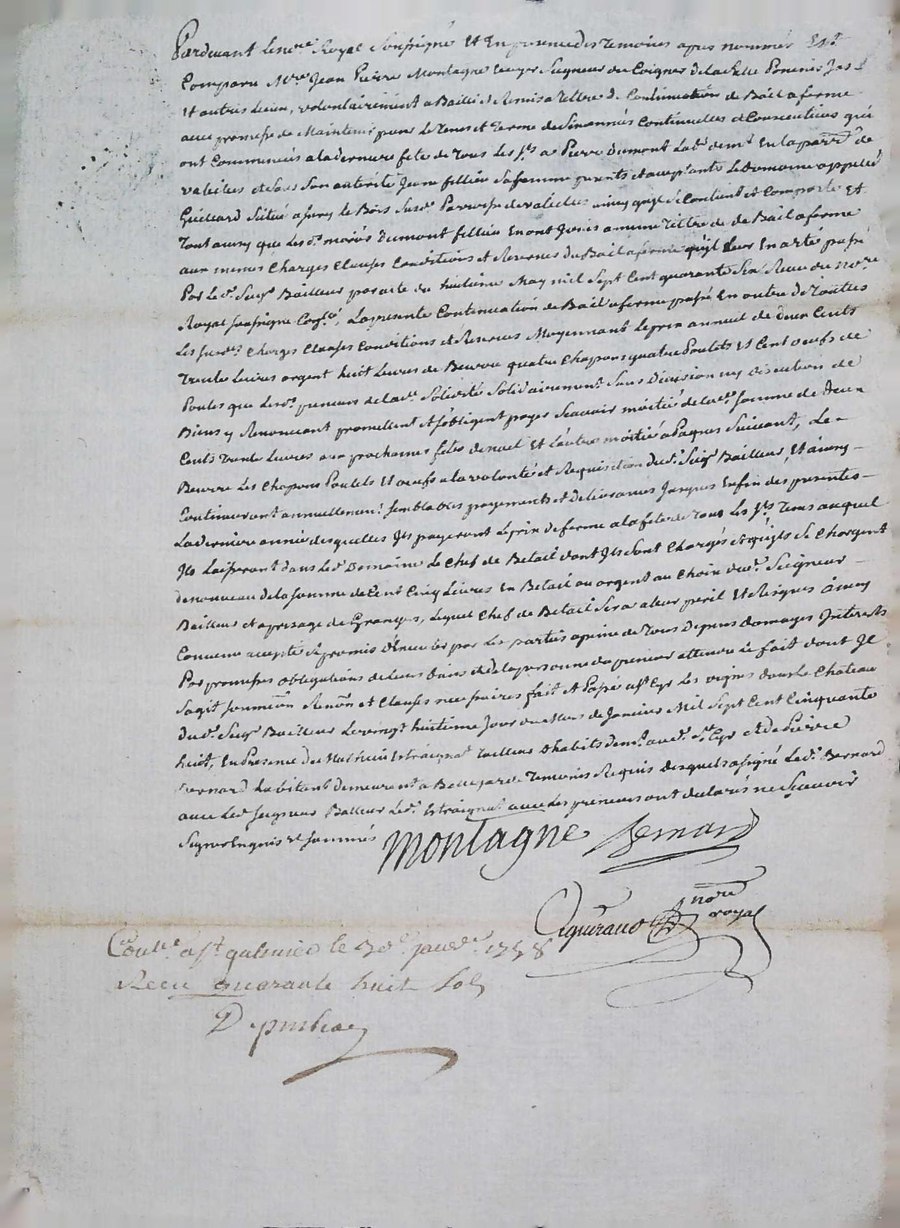 Pardevant le no.re Royal Soussigné Et En presence des Temoins apres nommés Est
Comparu M.re Jean Pierre Montagne Ecuyer Seigneur de Poncins
Et autres Lieux, volontairement a Baillé et Remis a Tittre de Continuation de Bail a ferme
avec promesse de Maintenir pour le Tems et Terme de Six années Continuelles et Consecutives qui
ont Commencés a la derniere fete de Tous Les S.ts a Pierre Dumont Lab.r dem.t En la parr.se de
valeilles et de Son autorité Jeane fillieu Sa femme presents et acceptants Le Domaine appellé
Guillard Situé a Jurey le Bois Sus.e Parroisse de valeilles ainsy qu'il Se Contient et Comporte Et
Tout ainsy que Les d. mariés Dumont fillieu En ont Jouis a meme Tittre de Bail a ferme
aux memes Charges Clauses Conditions et Reserves du Bail a ferme qu'il leur En a été passé
Par Le d. Seig.r Bailleur par acte du huitieme May mil Sept Cent quarante Six Receu du No.re
Royal Soussigné La presente Continuation de Bail a ferme passé En outre de Touttes
Les Susd.es Charges Clauses Conditions et Reserves Moyennant Le prix annuel de deux Cents
Trente Livres argent huit Livres de Beurre quatre Chapons quatre Poulets Et Cent oeufs de
Poules que Les d. preneurs de la d. Solidité Solidairement Sans Division ny Discution de
Biens y Renonceant promettent et S'obligent payer Scavoir moitié de la d. Somme de deux
Cents Trente Livres aux prochaines fetes de noel Et L'autre moitié a Paques Suivant, Le
Beurre Les Chapons Poulets Et oeufs a la volonté et Requisition dud. Seig.r Bailleur, Et ainsy
Continueront annuellement Semblables payements et delivrances Jusques En fin des presentes
La derniere année desquelles Ils payeront Le prix de ferme a la fete de Tous Les S.ts Tems auquel
Ils Laisseront dans Le d. Domaine Le Chef de Betail dont Ils Sont Chargés et qu'ils Se Chargent
de nouveau de la Somme de Cent Cinq Livres En Betail ou argent au Choix dud. Seigneur
Bailleur et a prisage de Granges, Lequel Chef de Betail Sera a leur peril Et Risques ainsy
Convenu accepté et promis D'executer par Les parties a peine de Tous Depens domages Interets
Par promesses obligations de Leurs Biens et de la personne du preneur attendu Le fait dont Il
S'agit Soumission Renon.on et Clauses necessaires fait et Passé a S.t Cyr Les vignes dans Le Chateau
dud. Seig.r Bailleur Le vingt huitieme Jour du Mois de Janvier Mil Sept Cent Cinquante
huit, En Presence de Mathieu Tailleur d'habits dem.t aud. S.t Cyr Et de Pierre
Bernard habitant demeurant a Bellegarde Temoins Requis Desquels a Signé Led. Bernard
avec Led. Seigneur Bailleur Led. avec Les preneurs ont declarés ne Scavoir
Signer Enquis et Sommés
Montagne Bernard
no.re royal
Con.lé a S.t galmier le 30.e janv.er 1758
Receu quarante huit Sols